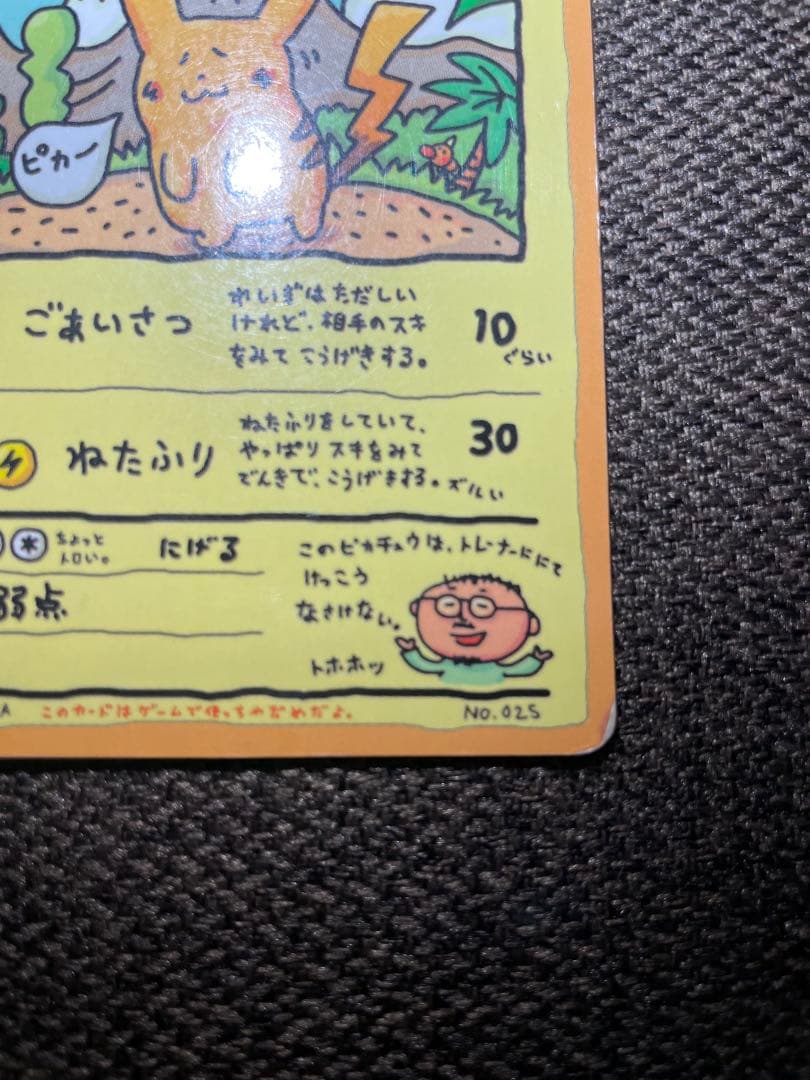 ピカー
ごあいさつ
れいぎはただしい
けれど、相手のスキ
をみて こうげきする。
10
ぐらい
ねたふり
ねたふりをしていて、
やっぱり スキをみて
でんきで、こうげきする。ズルい
30
ちょっと
トロい。
にげる
弱点
このピカチュウは、トレーナーににて
けっこう
なさけない。
トホホッ
A
このカードはゲームで使っちゃだめだよ。
NO.025